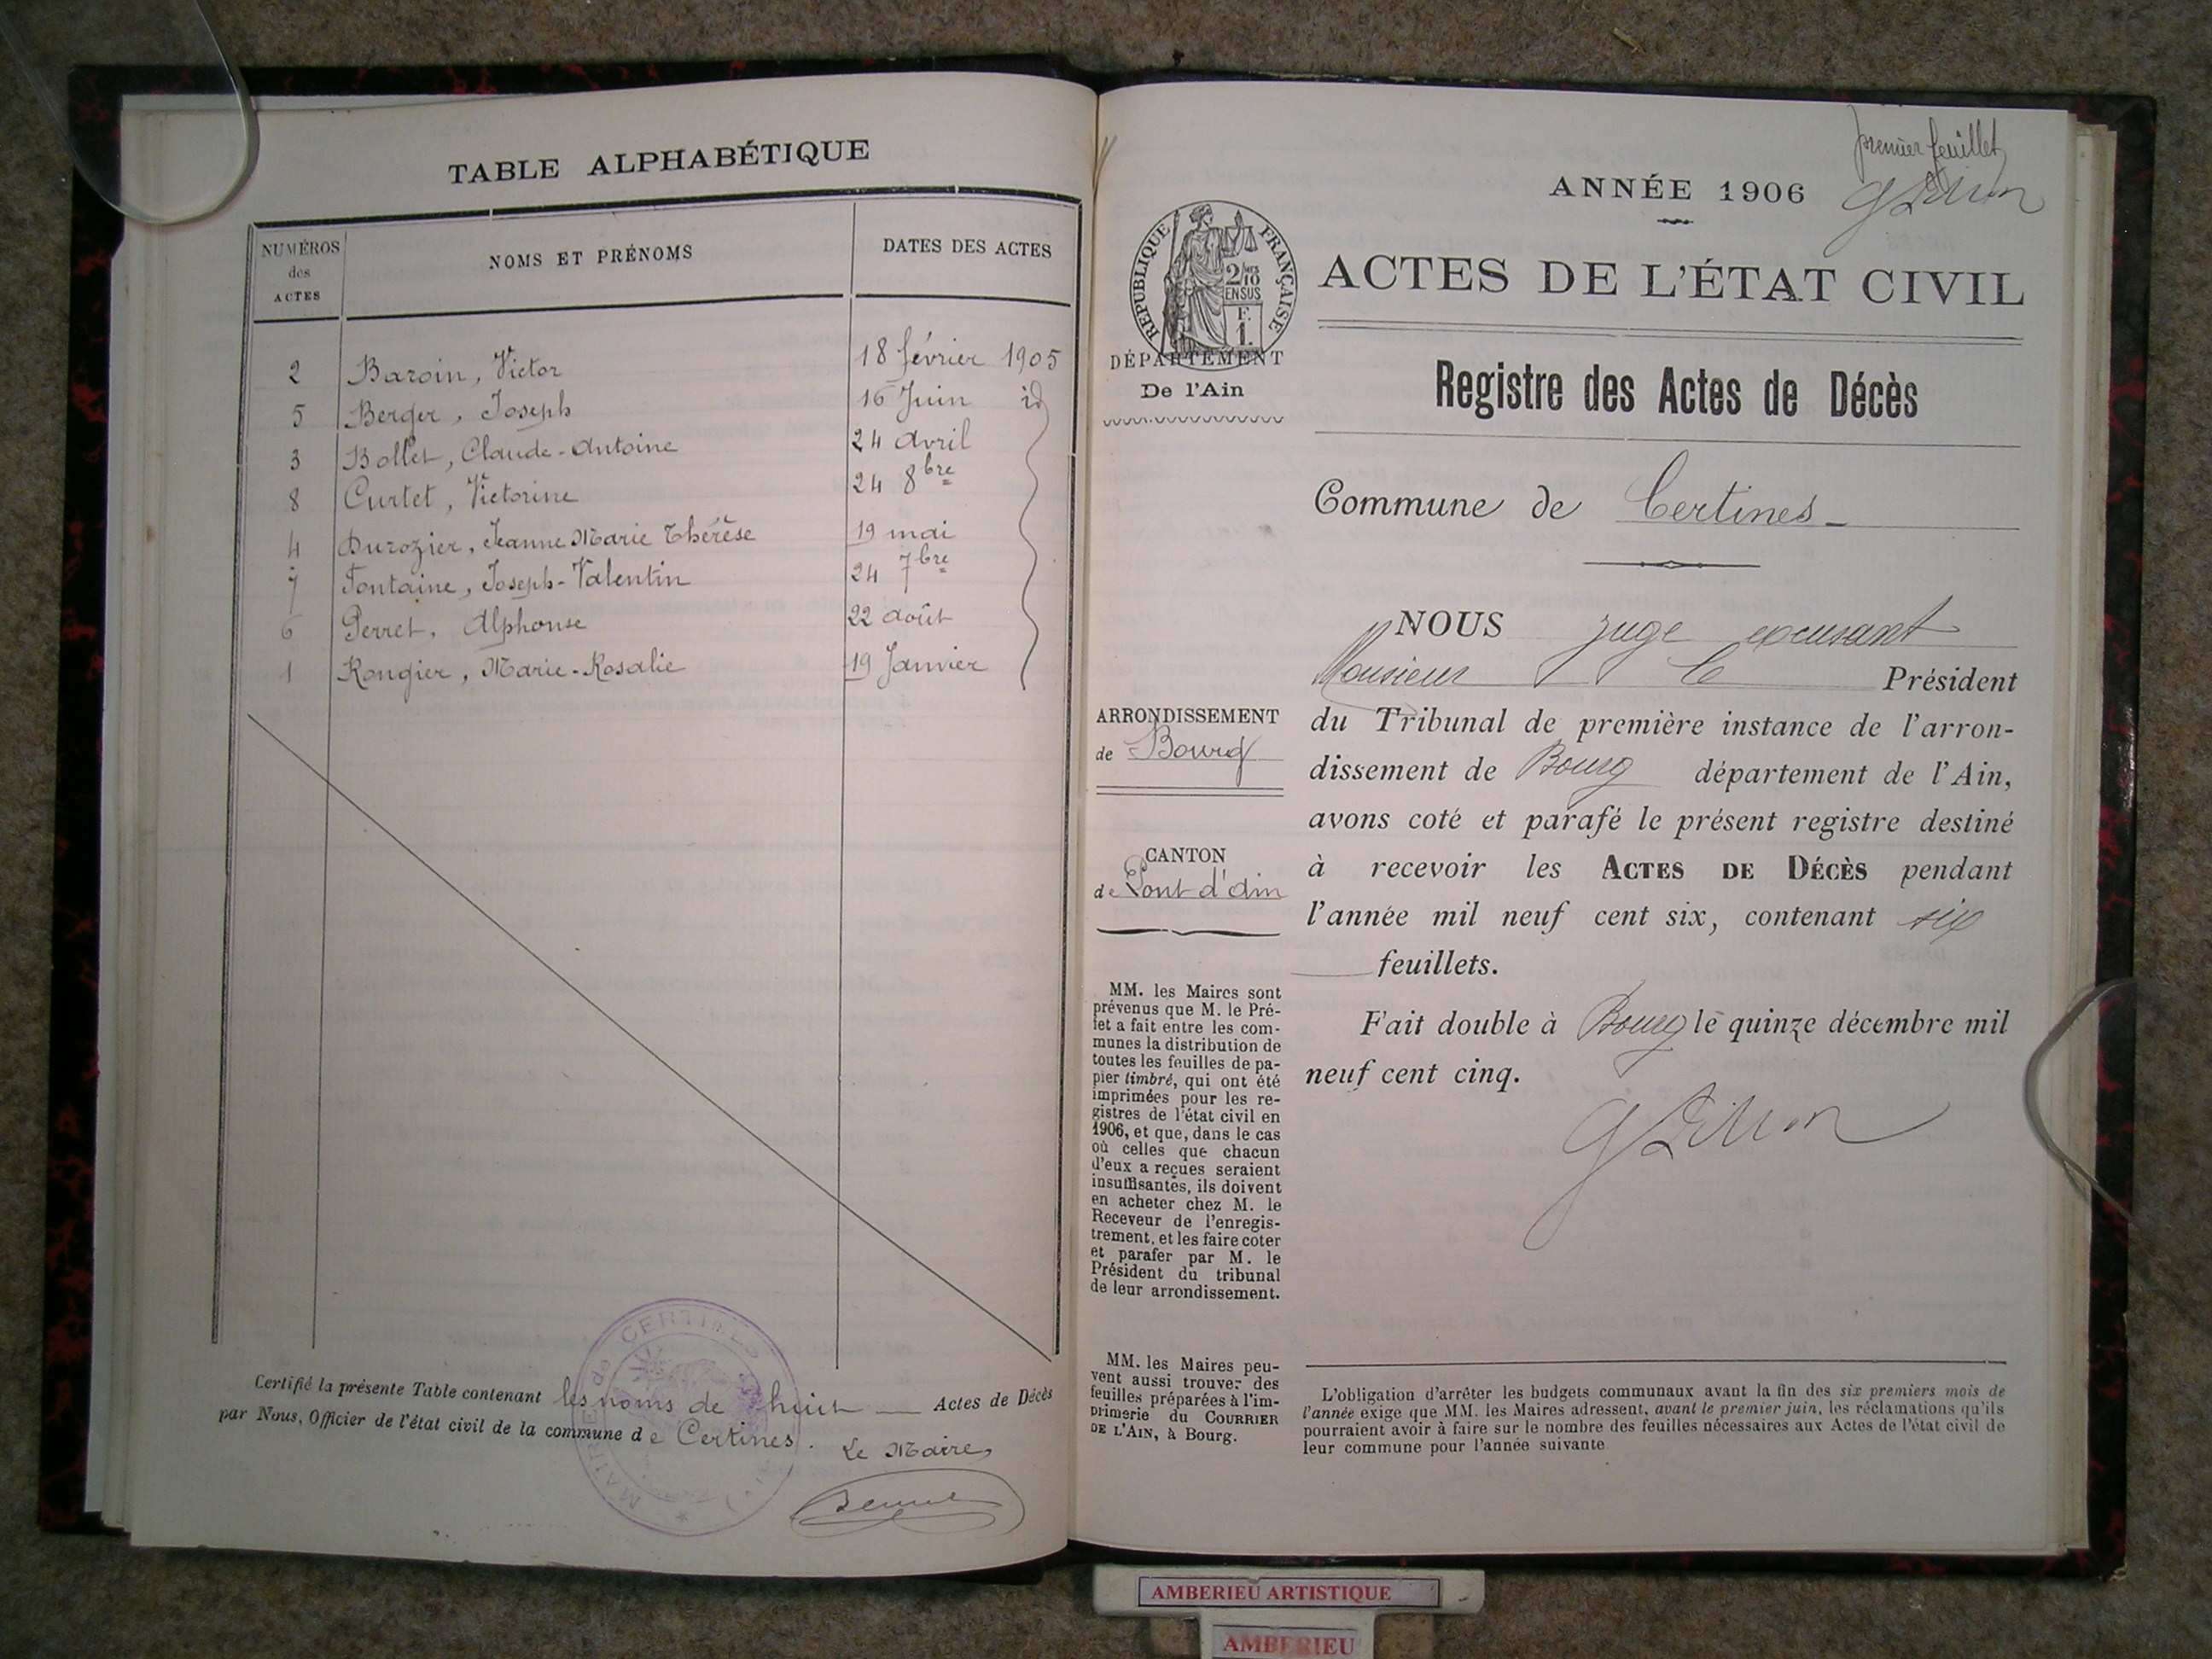 TABLE ALPHABÉTIQUE
NUMÉROS des ACTES
NOMS ET PRÉNOMS
DATES DES ACTES
2 Baroin, Victor 18 février 1905
5 Berger, Joseph 16 Juin id
3 Bollet, Claude-Antoine 24 avril
8 Curtet, Victorine 24 8bre
4 Durozier, Jeanne Marie Thérèse 19 mai
7 Fontaine, Joseph-Valentin 24 7bre
6 Perret, Alphonse 22 août
1 Rongier, Marie-Rosalie 19 Janvier
Certifié la présente Table contenant les noms de huit Actes de Décès
par Nous, Officier de l'état civil de la commune de Certines.
Le Maire,
MAIRIE de CERTINES
premier feuillet
ANNÉE 1906
RÉPUBLIQUE FRANÇAISE
2/10
EN SUS
F.
1.
ACTES DE L'ÉTAT CIVIL
DÉPARTEMENT
De l'Ain
Registre des Actes de Décès
Commune de Certines
ARRONDISSEMENT
de Bourg
CANTON
de Pont d'Ain
MM. les Maires sont
prévenus que M. le Pré-
fet a fait entre les com-
munes la distribution de
toutes les feuilles de pa-
pier timbré, qui ont été
imprimées pour les re-
gistres de l'état civil en
1906, et que, dans le cas
où celles que chacun
d'eux a reçues seraient
insuffisantes, ils doivent
en acheter chez M. le
Receveur de l'enregis-
trement, et les faire coter
et parafer par M. le
Président du tribunal
de leur arrondissement.
MM. les Maires peu-
vent aussi trouver des
feuilles préparées à l'im-
primerie du COURRIER
DE L'AIN, à Bourg.
NOUS juge excusant
Monsieur le Président
du Tribunal de première instance de l'arron-
dissement de Bourg département de l'Ain,
avons coté et parafé le présent registre destiné
à recevoir les ACTES DE DÉCÈS pendant
l'année mil neuf cent six, contenant six
feuillets.
Fait double à Bourg le quinze décembre mil
neuf cent cinq.
L'obligation d'arrêter les budgets communaux avant la fin des six premiers mois de
l'année exige que MM. les Maires adressent, avant le premier juin, les réclamations qu'ils
pourraient avoir à faire sur le nombre des feuilles nécessaires aux Actes de l'état civil de
leur commune pour l'année suivante
AMBERIEU ARTISTIQUE
AMBERIEU